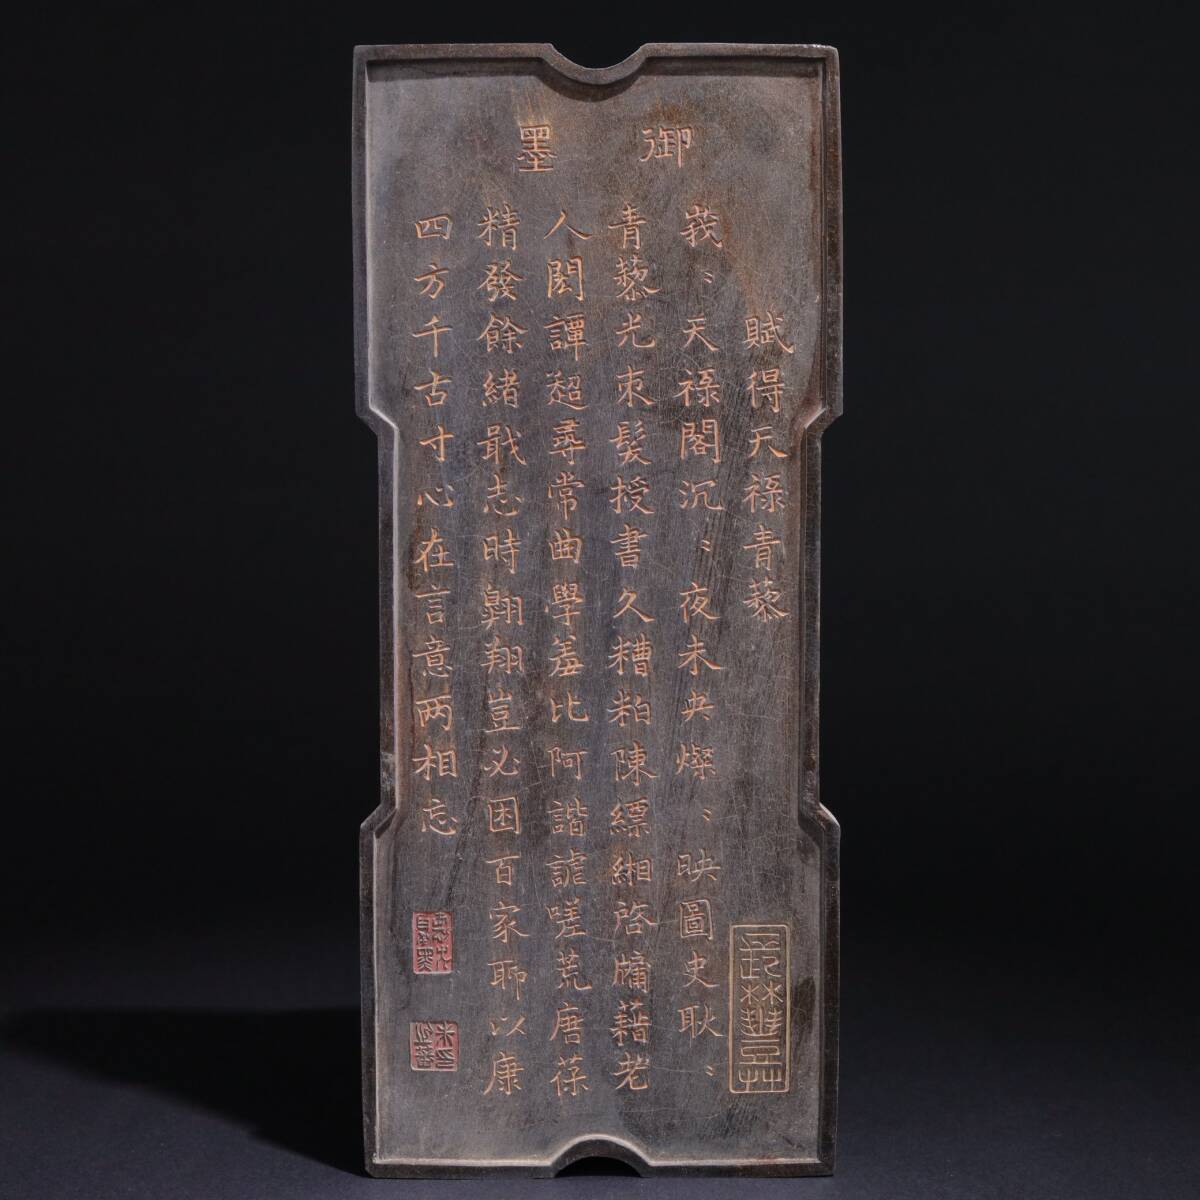 御墨
賦得天祿青藜
莪〻天祿閣沉〻夜未央燦〻映圖史耿〻
青藜光朿髮授書久糟粕陳縹緗啓牗藉老
人閎譚超尋常曲學羞比阿諧謔嗟荒唐葆
精發餘緒戢志時翱翔豈必困百家聊以康
四方千古寸心在言意两相忘